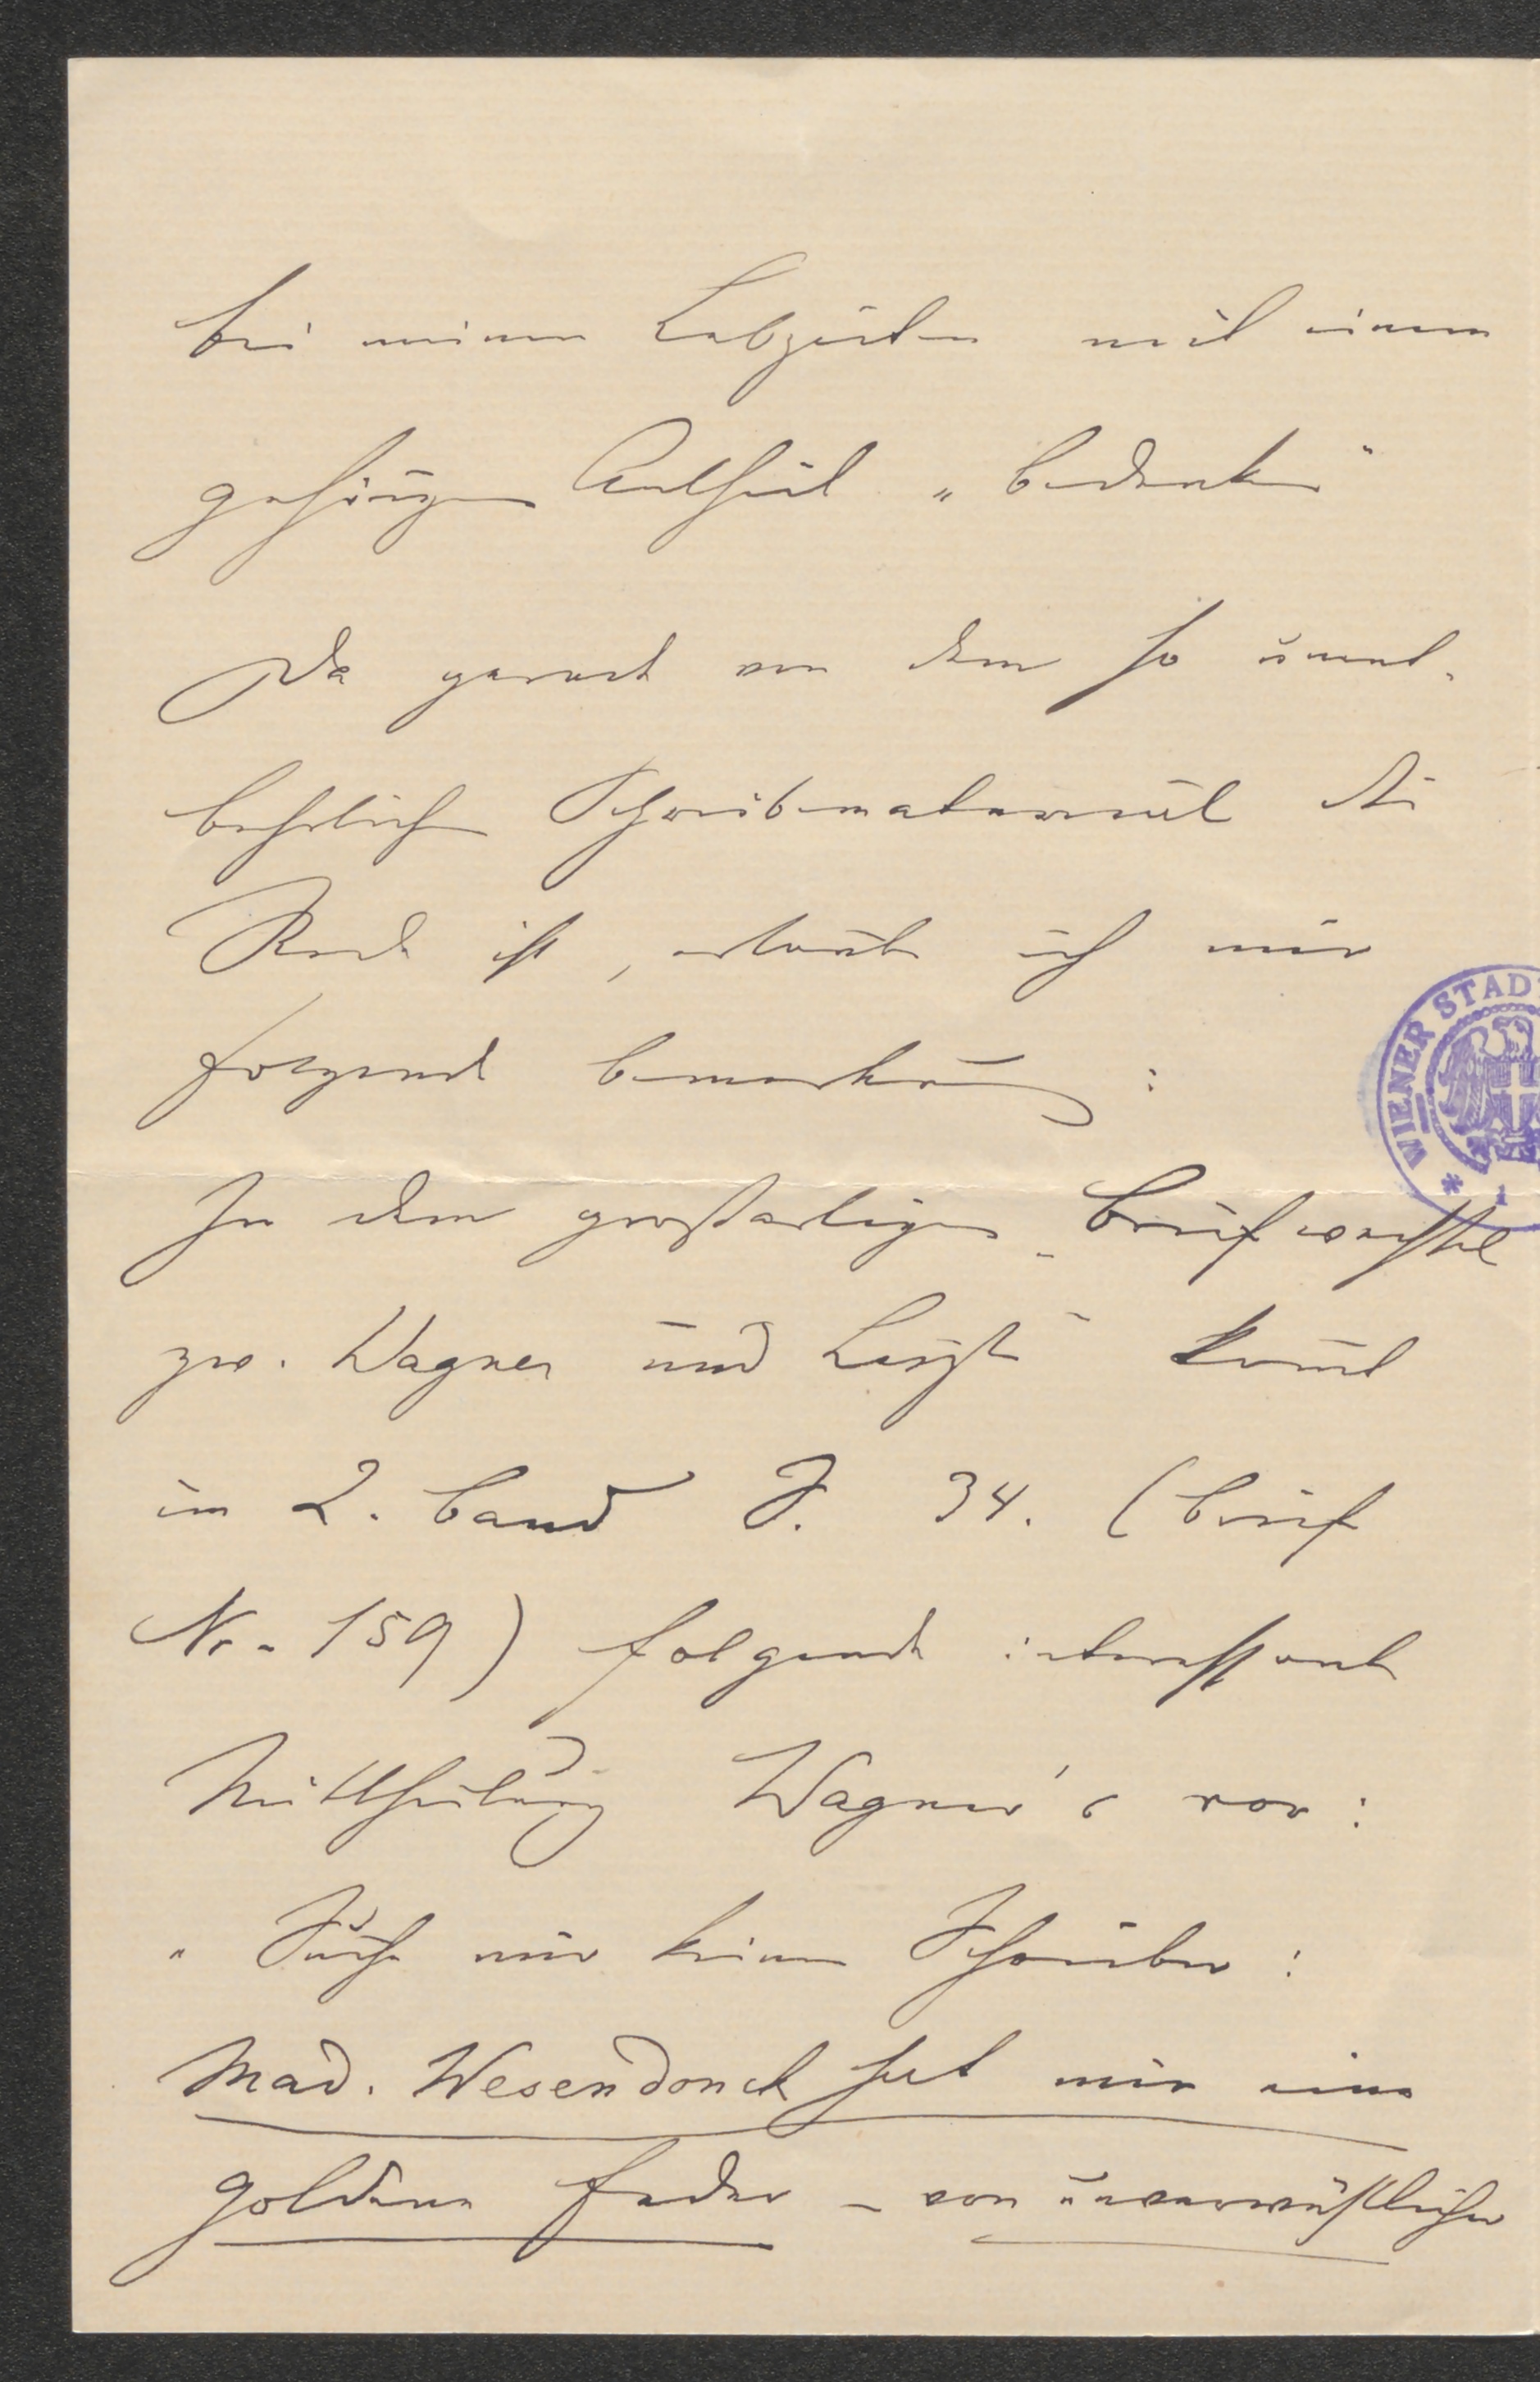 bei meinen Lebzeiten mit einem
gehörigen Antheil „bedenken“
Da gerade von dem so unent-
behrlichen Schreibmaterial die
Rede ist, erlaube ich mir
folgende Bemerkung:
In dem großartigen „Briefwechsel
zw. Wagner und Liszt“ kom̄t
im 2. Band S. 34. (Brief
Nr. 159) folgende interessante
Mittheilung Wagner's vor:
„Suche mir keinen Schreiber:
Mad. Wesendonck hat mir eine
goldene Feder – von unverwüstlicher
WIENER STAD